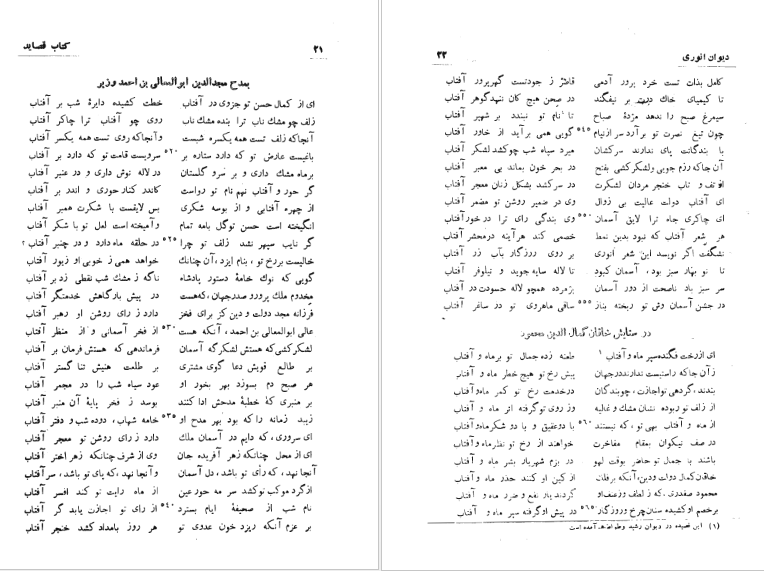 ۲۱ کتاب قصاید
بمدح مجدالدین ابوالمعالی بن احمد وزیر
ای از کمال حسن تو جزوی در آفتاب خطت کشیده دایرهٔ شب بر آفتاب
زلف چو مشک ناب ترا بنده مشک ناب روی چو آفتاب ترا چاکر آفتاب
آنجا که زلف تست همه یکسره شبست وآنجا که روی تست همه یکسر آفتاب
باغیست عارض تو که دارد ستاره بر ۵۲۰ سرویست قامت تو که دارد بر آفتاب
بر ماه مشک داری و بر سرو گلستان در لاله نوش داری و در عنبر آفتاب
گر حور و آفتاب نهم نام تو رواست کاندر کنار حوری و اندر بر آفتاب
از چهره آفتابی و از بوسه شکری بس لایقست با شکرت همبر آفتاب
انگیخته است حسن تو گل با مه تمام وآمیخته است لعل تو با شکر آفتاب
گر نایب سپهر نشد زلف تو چرا ۵۲۵ در حلقه ماه دارد و در چنبر آفتاب؟
خالیست بر رخ تو ، بنام ایزد، آن چنانک خواهد همی ز خوبی او زیور آفتاب
گویی که نوک خامهٔ دستور پادشاه ناگه ز مشک شب نقطی زد بر آفتاب
مخدوم ملک پرور و صدر جهان، که هست در پیش بارگاهش خدمتگر آفتاب
فرزانه مجد دولت و دین کز برای فخر دارد ز رای روشن او رهبر آفتاب
عالی ابوالمعالی بن احمد، آنکه هست ۵۳۰ از فخر آسمانی و از منظر آفتاب
لشکرکشی که هستش لشکرگه آسمان فرماندهی که هستش فرمان بر آفتاب
بر طالع قویش دعا گوی مشتری بر طلعت هنیش ثنا گستر آفتاب
هر صبح دم بسوزد بهر بخور او عود سیاه شب را در مجمر آفتاب
بر منبری که خطبهٔ مدحش ادا کنند بوسد ز فخر پایهٔ آن منبر آفتاب
زیبد زمانه را که بود بهر مدح او ۵۳۵ خامه شهاب، دوده شب و دفتر آفتاب
ای سروری، که دایم در آسمان ملک دارد ز رای روشن تو معجر آفتاب
ای از محل چنانکه زهر آفریده جان وی از شرف چنانکه زهر اختر آفتاب
آنجا نهد، که رأی تو باشد، دل آسمان وآنجا نهد، که پای تو باشد، سر آفتاب
از گرد موکب تو کشد سر مه حور عین از ماه رایت تو کند افسر آفتاب
نام شب از صحیفهٔ ایام بسترد ۵۴۰ از رای تو اجازت یابد گر آفتاب
بر عزم آنکه ریزد خون عدوی تو هر روز بامداد کشد خنجر آفتاب
دیوان انوری ۲۲
کامل بذات تست خرد پرور آدمی قاصر ز جود تست گهرپرور آفتاب
تا کیمیای خاک درت بر نیفگند در صحن هیچ کان ننهد گوهر آفتاب
سیمرغ صبح را ندهد مژدهٔ صباح تا نام تو نبندد بر شهپر آفتاب
چون تیغ نصرت تو برآرد سر از نیام ۵۴۵ گویی همی برآید از خاور آفتاب
با بندگانت پای ندارند سرکشان میرد سپاه شب چو کشد لشکر آفتاب
آن جا که رزم جویی و لشکرکشی بفتح در بحر خون بماند بی معبر آفتاب
از تف و تاب خنجر مردان لشکرت در سر کشد بشکل زنان معجر آفتاب
ای آفتاب دولت عالیت بی زوال وی در ضمیر روشن تو مضمر آفتاب
ای چاکری جاه ترا لایق آسمان ۵۵۰ وی بندگی رای ترا در خور آفتاب
هر شعر آفتاب که نبود بدین نمط خصمی کند هرآینه در محشر آفتاب
نشگفت اگر نویسد این شعر انوری بر روی روزگار بآب زر آفتاب
تا نو بهار سبز بود، آسمان کبود تا لاله سایه جوید و نیلوفر آفتاب
سر سبز باد ناصحت از دور آسمان پژمرده همچو لاله حسودت در آفتاب
در جشن آسمان وش تو ریخته بناز ۵۵۵ ساقی ماهروی تو در ساغر آفتاب
در ستایش خاقان کمال الدین محمود
ای از رخت فگنده سپر ماه و آفتاب ۱ طعنه زده جمال تو بر ماه و آفتاب
زآن جا که راستیست ندارند در جهان پیش رخ تو هیچ خطر ماه و آفتاب
بندند، گر دهی تو اجازت، چو بندگان در خدمت رخ تو کمر ماه و آفتاب
از زلف تو ربوده نشان مشک و غالیه وز روی تو گرفته اثر ماه و آفتاب
از ماه و آفتاب بهی تو، که نیستند ۵۶۰ با دو عقیق و با دو شکر ماه و آفتاب
در صف نیکوان بمقام مفاخرت خواهند از رخ تو نظر ماه و آفتاب
باشند با جمال تو حاضر بوقت لهو در بزم شهریار بشر ماه و آفتاب
خاقان کمال دولت و دین، آنکه بر فلک از کین او کنند حذر ماه و آفتاب
محمود صفدری، که ز لطف و ز عنف او گردند پاد نفع و ضرر ماه و آفتاب
بر خصم او کشیده سنان چرخ و روزگار ۵۶۵ در پیش او گرفته سپر ماه و آفتاب
(۱) این قصیده در دیوان رشید وطواط هم آمده است